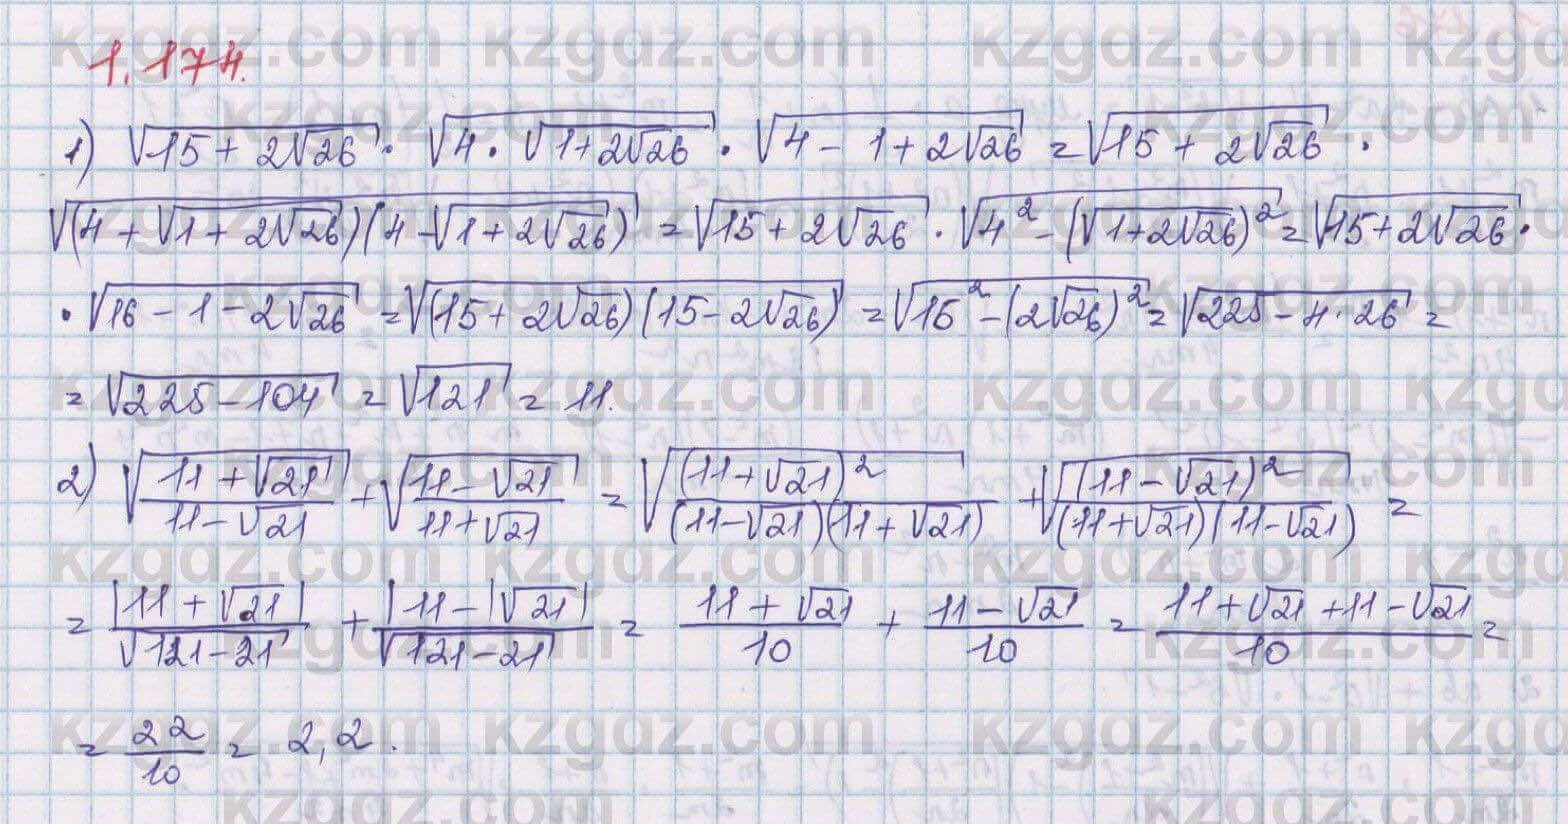 1.174.
1) √(15 + 2√26) · √(4 · √(1+2√26)) · √(4 - 1 + 2√26) = √(15 + 2√26) ·
√((4 + √(1 + 2√26))(4 - √(1 + 2√26))) = √(15 + 2√26) · √(4² - (√(1+2√26))²) = √(15 + 2√26) ·
· √(16 - 1 - 2√26) = √((15 + 2√26)(15 - 2√26)) = √(15² - (2√26)²) = √(225 - 4 · 26) =
= √(225 - 104) = √121 = 11.
2) √((11 + √21)/(11 - √21)) + √((11 - √21)/(11 + √21)) = √((11 + √21)²/((11 - √21)(11 + √21))) + √((11 - √21)²/((11 + √21)(11 - √21))) =
= |11 + √21|/√(121 - 21) + |11 - |√21|/√(121 - 21) = (11 + √21)/10 + (11 - √21)/10 = (11 + √21 + 11 - √21)/10 =
= 22/10 = 2,2.
kzgdz.com